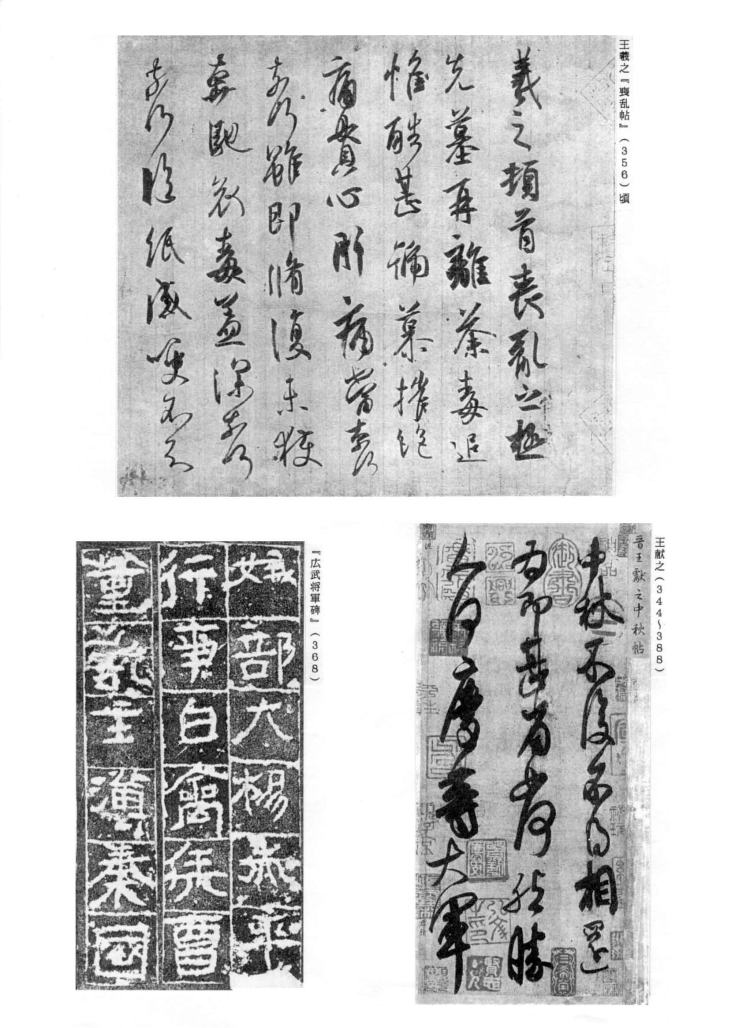 王羲之『喪乱帖』(356)頃
羲之頓首喪亂之極
先墓再離荼毒追
惟酷甚號慕摧絶
痛貫心肝痛當奈何
奈何雖即脩復未獲
奔馳哀毒益深奈何
奈何臨紙感哽不知
王献之(344〜388)
晋王献之中秋帖
中秋不復不得相還
為即甚省如何然勝
人何慶等大軍
『広武将軍碑』(368)
部大楊平
行事白禽矦曹
董主秦国